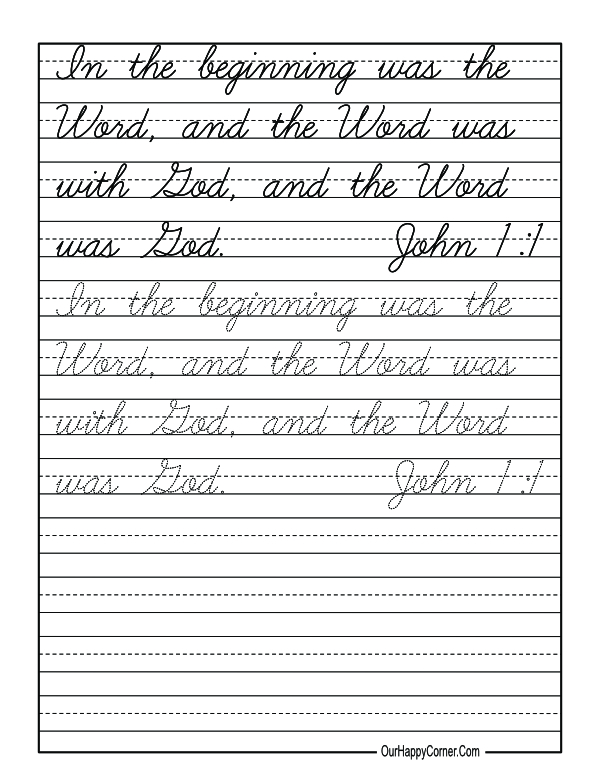 In the beginning was the
Word, and the Word was
with God, and the Word
was God. John 1:1
In the beginning was the
Word, and the Word was
with God, and the Word
was God. John 1:1
OurHappyCorner.Com